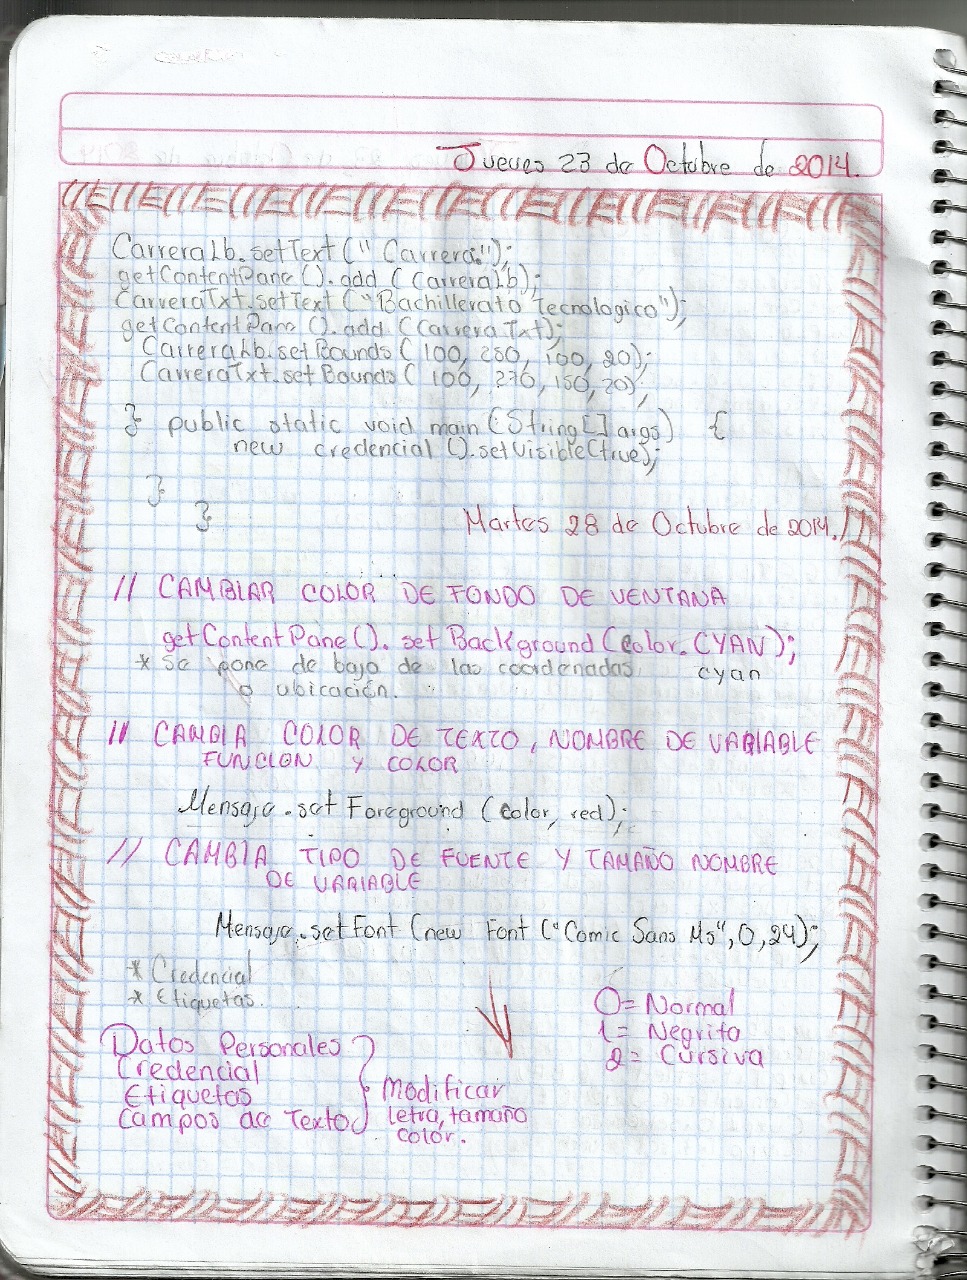 Jueves 23 de Octubre de 2014.
CarreraLb.setText (" Carrera:");
getContentPane ().add ( CarreraLb);
CarreraTxt.setText ("Bachillerato Tecnologico");
getContentPane ().add (CarreraTxt);
CarreraLb.setBounds ( 100, 250, 100, 20);
CarreraTxt.setBounds ( 100, 270, 150, 20);
} public static void main (String [] args) {
new credencial ().setVisible(true);
}
}
Martes 28 de Octubre de 2014.
// CAMBIAR COLOR DE FONDO DE VENTANA
getContentPane (). set Background (Color.CYAN);
* Se pone de bajo de las coordenadas cyan
o ubicación.
// CAMBIA COLOR DE TEXTO, NOMBRE DE VARIABLE
FUNCION Y COLOR
Mensaje.set Foreground (Color, red);
// CAMBIA TIPO DE FUENTE Y TAMAÑO NOMBRE
DE VARIABLE
Mensaje.setFont (new Font ("Comic Sans Ms", 0, 24);
* Credencial
* Etiquetas.
0= Normal
1= Negrita
2= Cursiva
Datos Personales
Credencial
Etiquetas
Campos de Texto
Modificar
letra, tamaño
color.